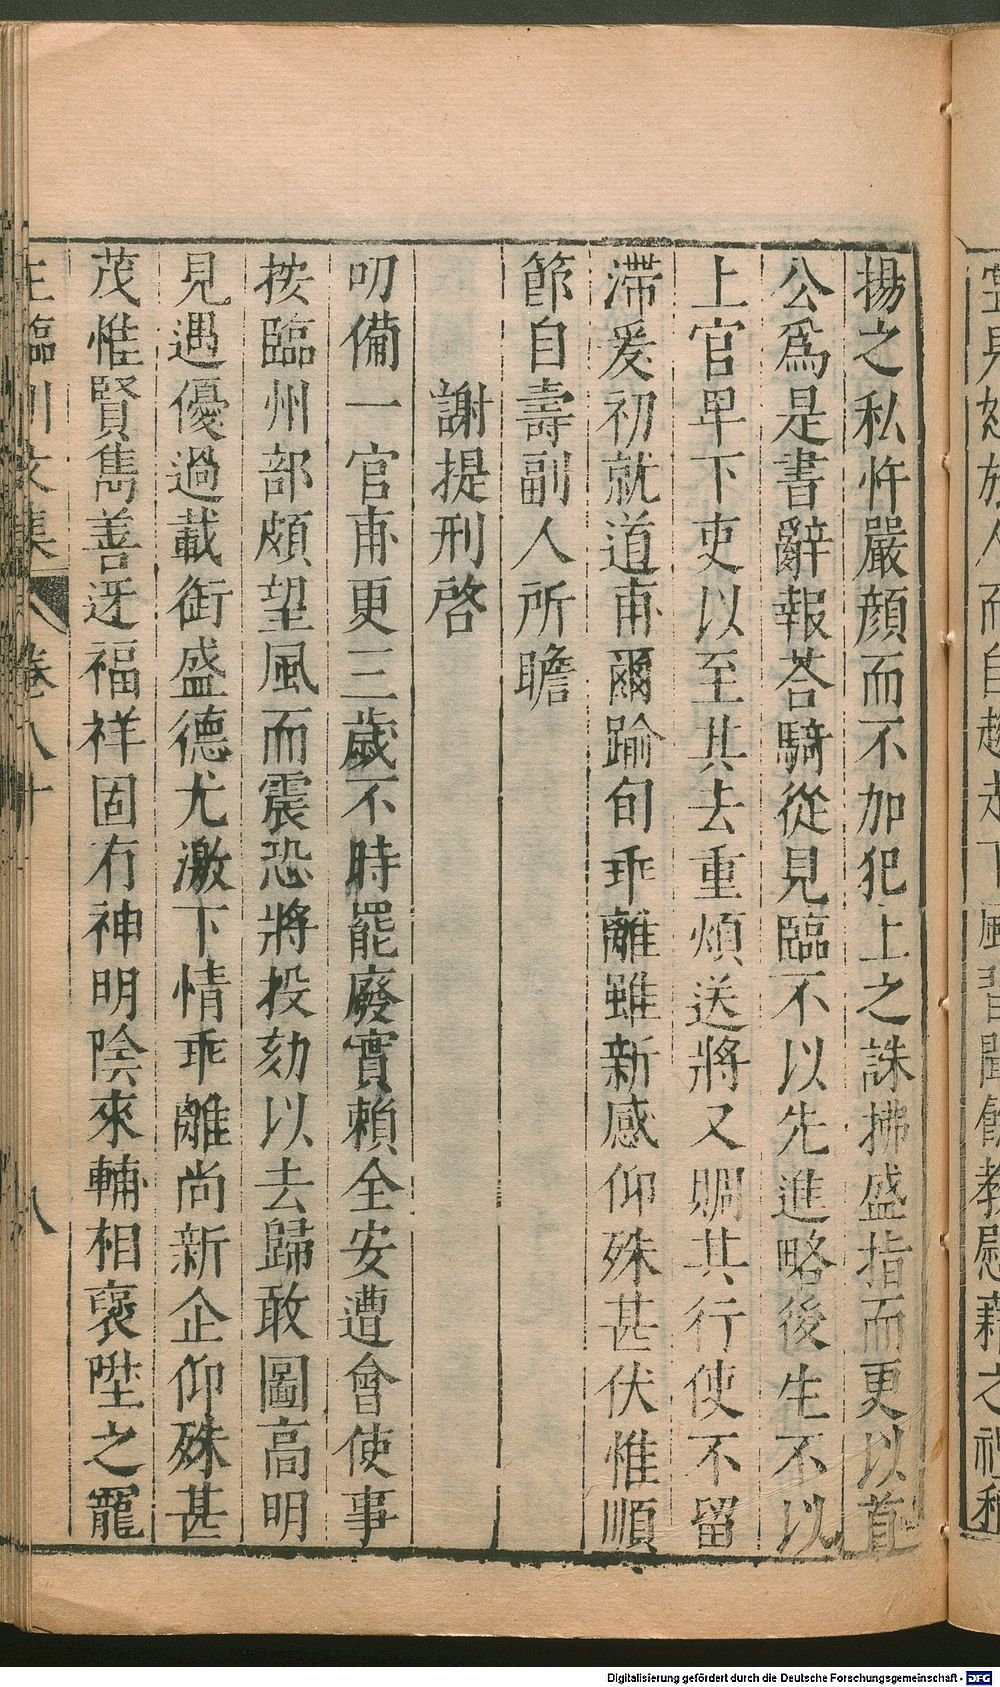 揚之私忤嚴顔而不加犯上之誅拂盛指而更以首
公爲是書辭報荅騎從見臨不以先進略後生不以
上官卑下吏以至其去重煩送將又賙其行使不留
滯爰初就道甫爾踰旬乖離雖新感仰殊甚伏惟順
節自壽副人所瞻
謝提刑啓
叨備一官甫更三歲不時罷廢實賴全安遭會使事
按臨州部頗望風而震恐將投劾以去歸敢圖高明
見遇優過載銜盛德尤激下情乖離尚新企仰殊甚
茂惟賢雋善迓福祥固有神明陰來輔相襃陞之寵
王臨川文集 卷八十 八
Digitalisierung gefördert durch die Deutsche Forschungsgemeinschaft - DFG